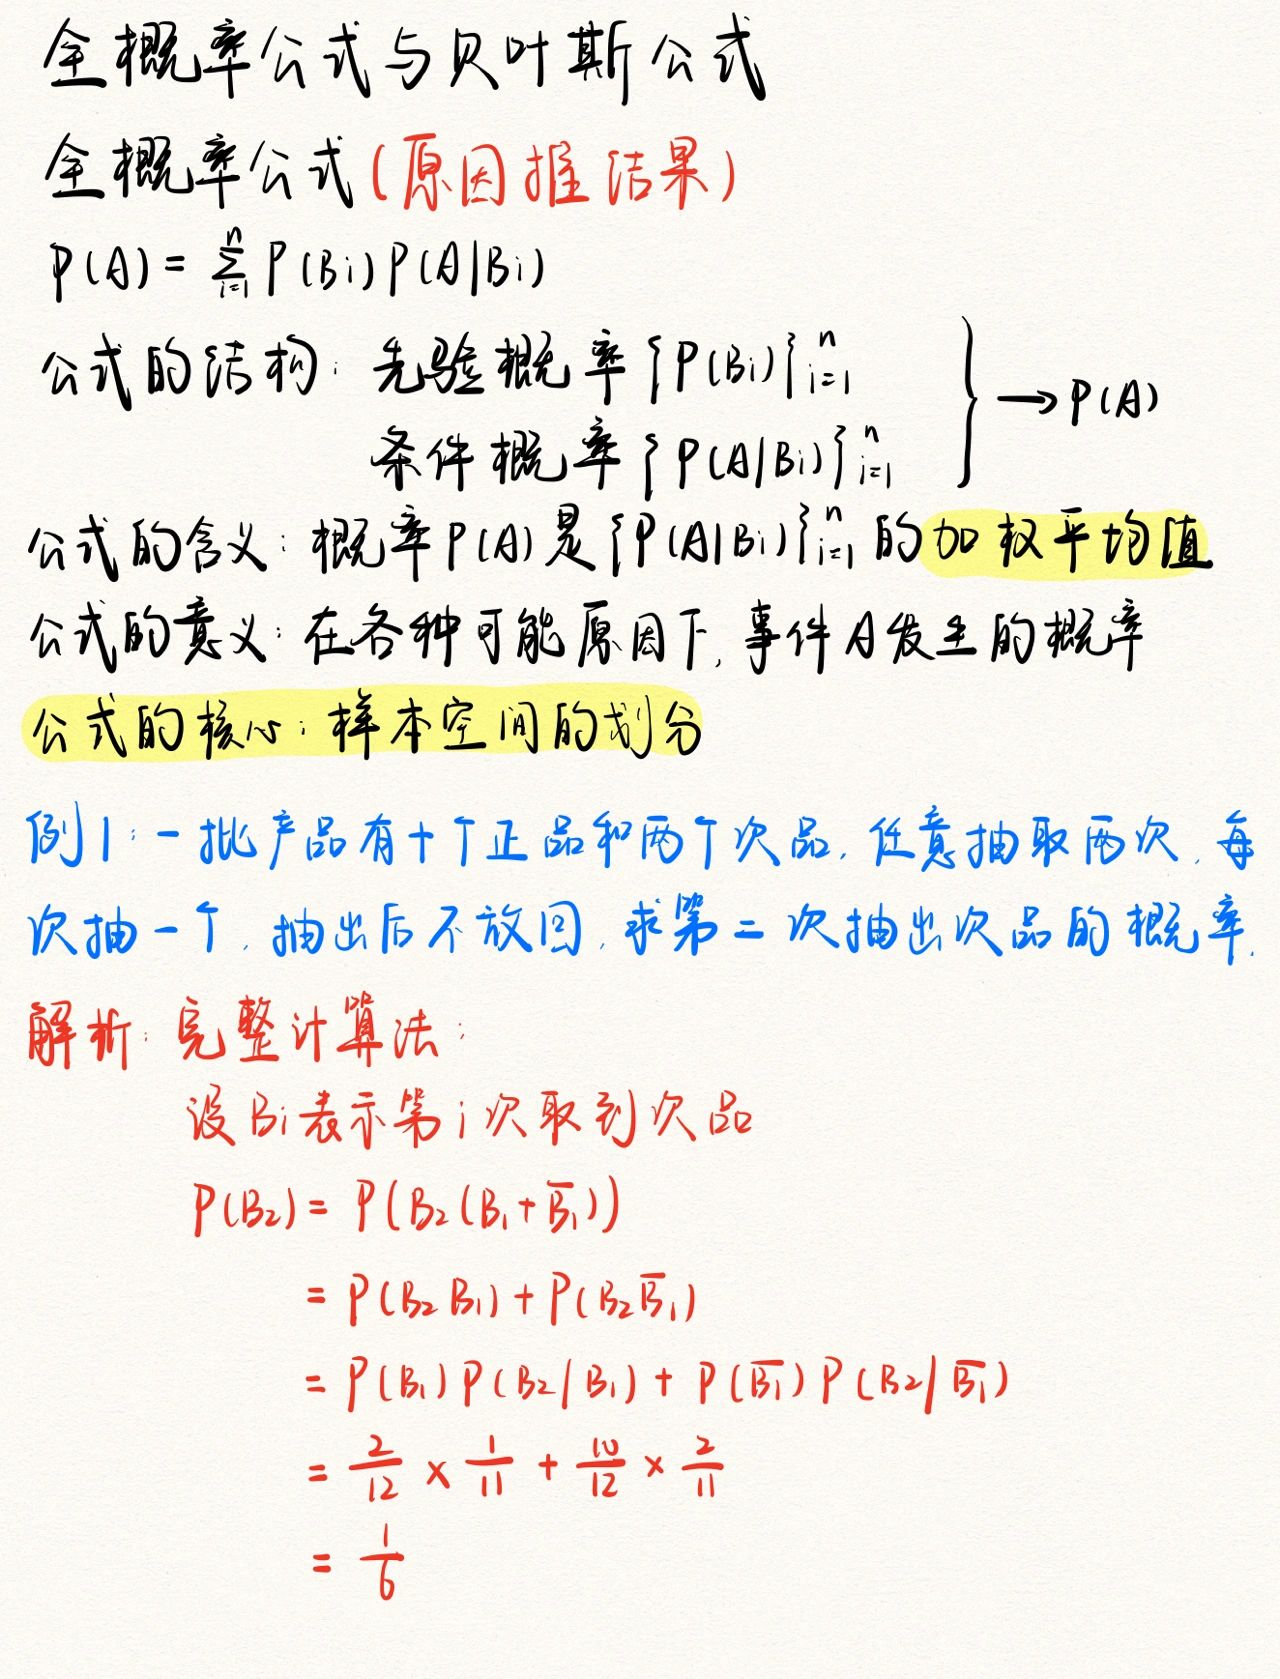 全概率公式与贝叶斯公式
全概率公式(原因推结果)
P(A) = ∑ⁿᵢ₌₁ P(Bi) P(A|Bi)
公式的结构: 先验概率 {P(Bi)}ⁿᵢ₌₁
条件概率 {P(A|Bi)}ⁿᵢ₌₁ } → P(A)
公式的含义: 概率P(A)是{P(A|Bi)}ⁿᵢ₌₁ 的加权平均值
公式的意义: 在各种可能原因下, 事件A发生的概率
公式的核心: 样本空间的划分
例1: 一批产品有十个正品和两个次品, 任意抽取两次, 每
次抽一个, 抽出后不放回, 求第二次抽出次品的概率.
解析: 完整计算法:
设Bi表示第i次取到次品
P(B₂) = P(B₂(B₁+B̅₁))
= P(B₂B₁) + P(B₂B̅₁)
= P(B₁)P(B₂|B₁) + P(B̅₁)P(B₂|B̅₁)
= 2/12 × 1/11 + 10/12 × 2/11
= 1/6